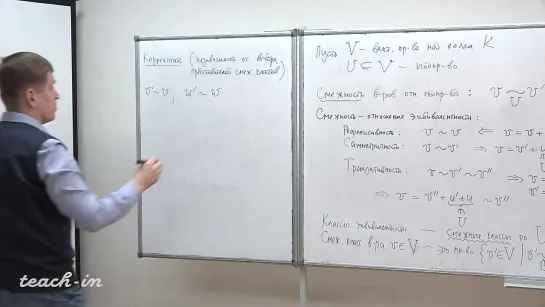 Корректность (независимость от выбора
представителей смеж. классов)
v' ~ v, w' ~ w
Пусть V – вект. пр-во над полем K
U ⊆ V – подпр-во
Смежность в-ров отн. подпр-ва: v ~ v'
U
Смежность – отношение эквивалентности:
Рефлексивность: v ~ v ⇐ v = v +
Симметричность: v ~ v' ⇒ v = v' + u
Транзитивность: v ~ v' ~ v'' ⇒ v =
⇒ v = v'' + u' + u ~ v''
U
Классы эквивалентности – смежные классы по U
Смеж. класс в-ра v ∈ V – это мн-во {v' ∈ V | v' ~
teach-in